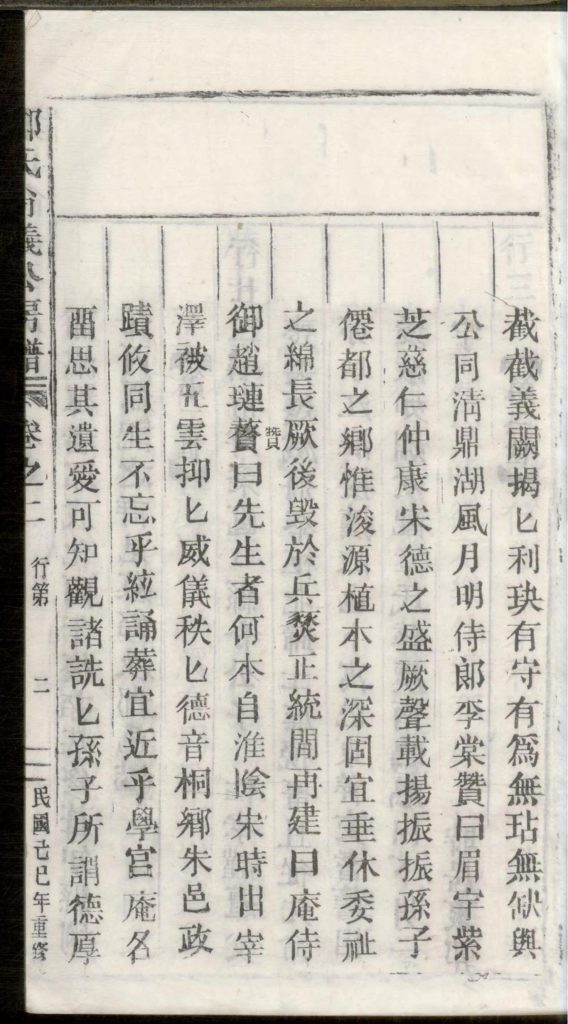 截截義闕揭匕利玦有守有爲無玷無缺與
公同清鼎湖風月明侍郎李棠贊曰眉宇紫
芝慈仁仲康宋德之盛厥聲載揚振振孫子
僊都之鄉惟浚源植本之深固宜垂休委祉
之綿長厥後毀於兵燹正統間再建曰庵侍
御趙璉贅曰先生者何本自淮陰宋時出宰
澤被五雲抑匕威儀秩匕德音桐鄉朱邑政
蹟攸同生不忘乎絃誦葬宜近乎學宮庵名
畱思其遺愛可知觀諸詵匕孫子所謂德厚
氏尚義公房譜 卷之二 行第 二 民國己巳年重修